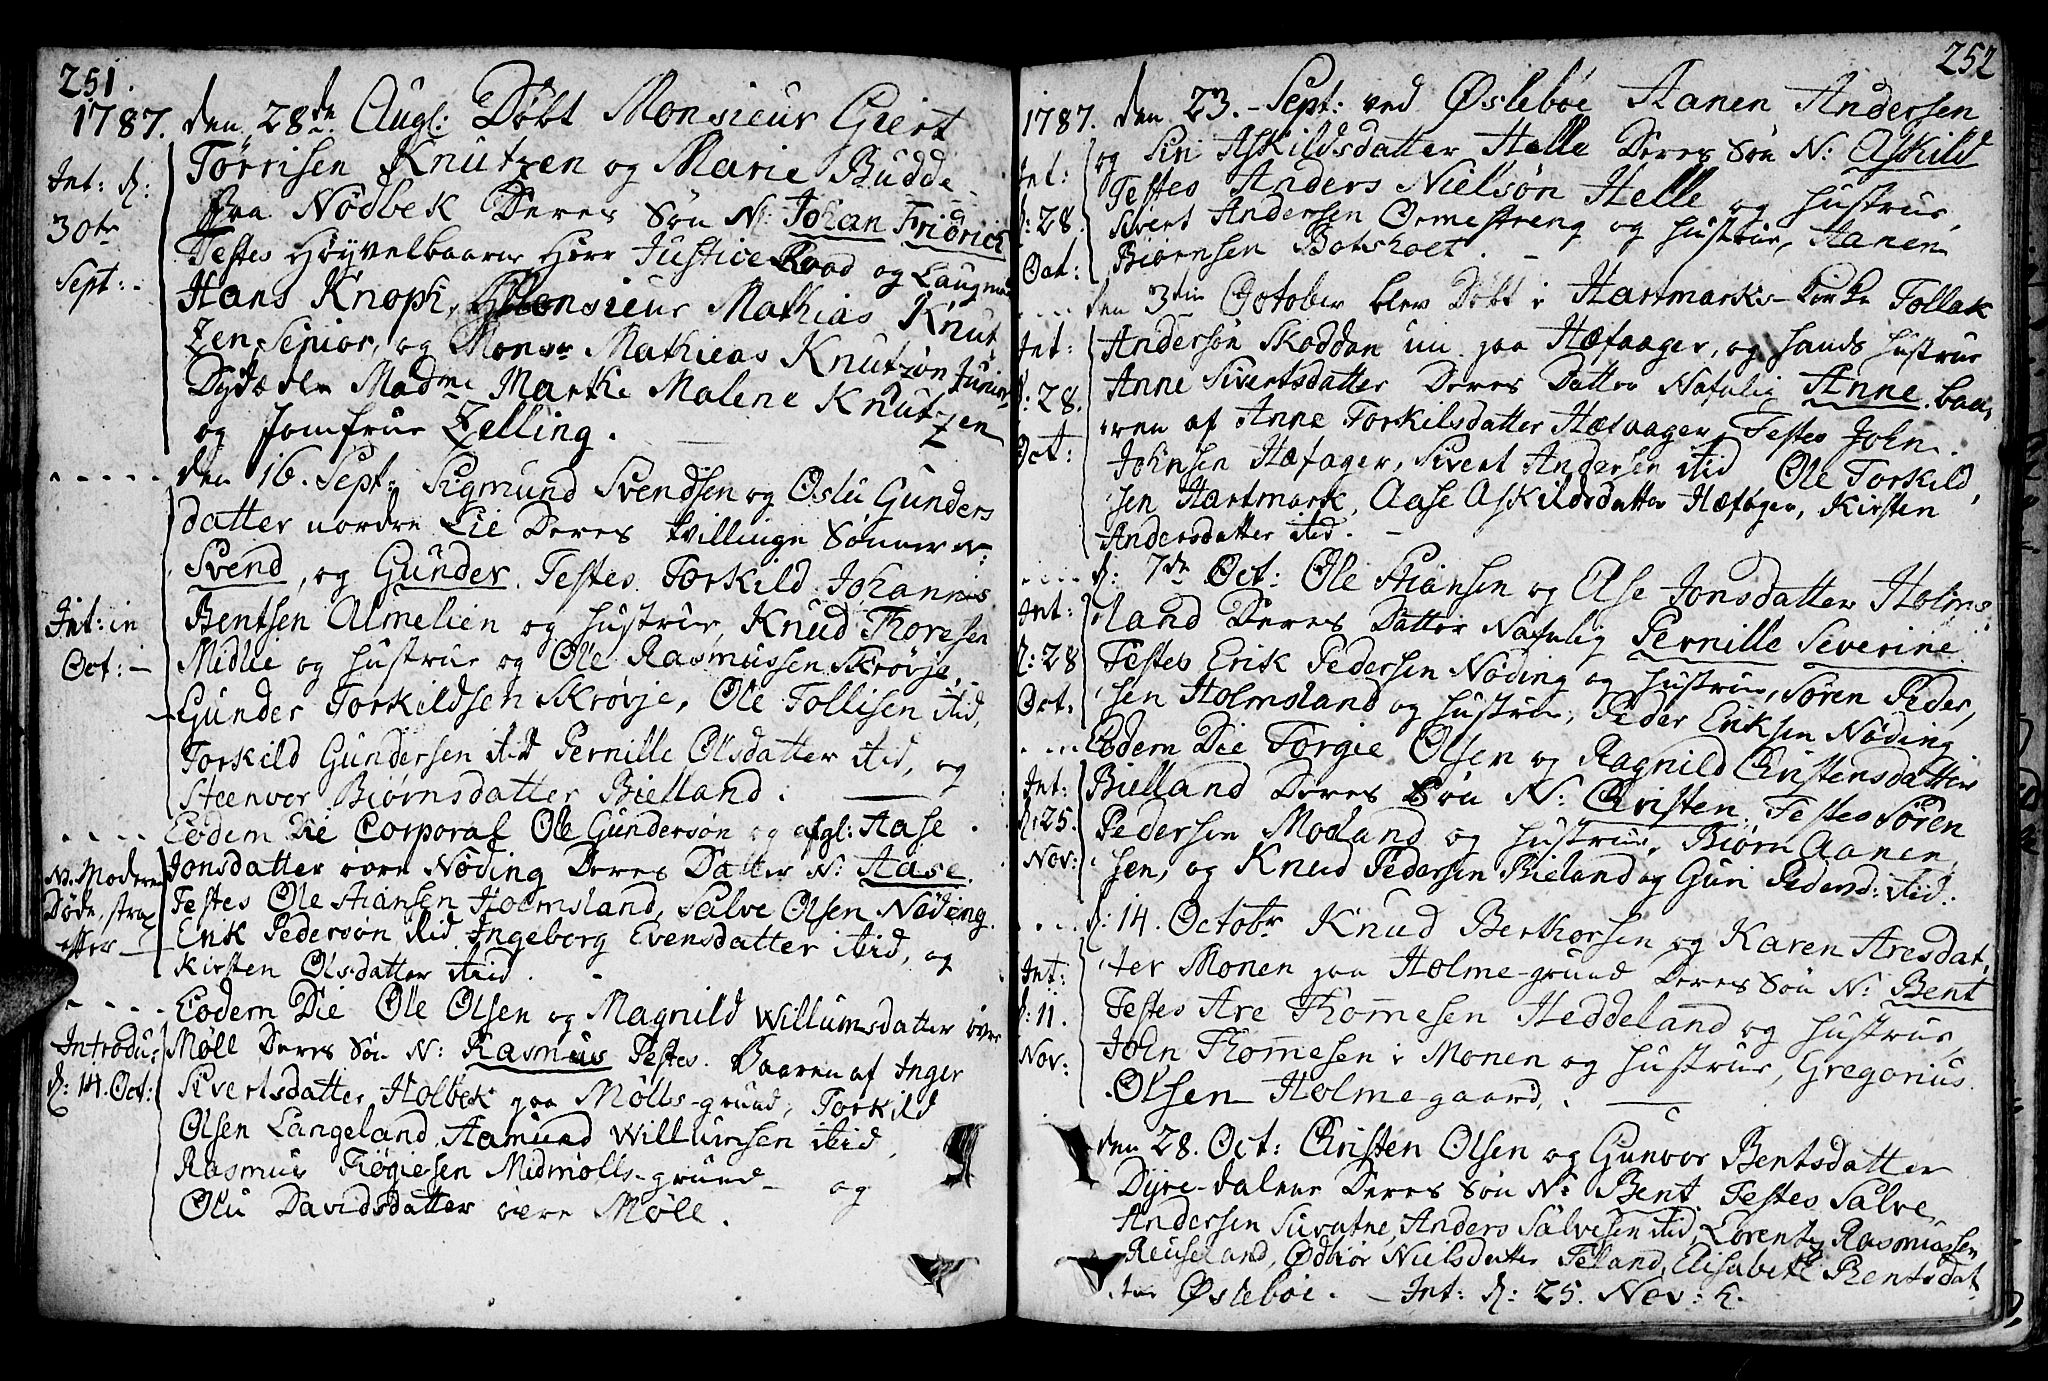 251.
1787. den 28de Augl: Döbt Monsieur Giert
Törrisen Knutzen og Marie Budde
paa Nödbek Deres Sön N: Johan Fridrich
Testes Höyvelbaarne Herr Justice Raad og Laugm
Hans Knoph, Monsieur Mathias Knut
zen Senior, og Monsr Mathias Knutzon Junior,
Madme Marthe Malene Knutzen
og Jomfrue Zelling.
Int: d:
30te
Sept:
den 16. Sept: Sigmund Svendsen og Oslu Gunders
datter nordre Lie Deres tvillinge Sönner N:
Svend, og Gunder. Testes Torkild Johannis
Bentsen Almelien og Hustrue, Knud Thoresen
Midlie og Hustrue og Ole Rasmussen Skrövje,
Gunder Torkildsen Skrövje, Ole Tollisen ibid,
Torkild Gundersen ibid Pernille Olsdatter ibid, og
Steenvor Biörnsdatter Bielland.
Int: in
Oct:
Eodem Die Corporal Ole Gundersön og afgl: Aase
Jonsdatter övre Nöding Deres Datter N: Aase.
Testes Ole Stiansen Holmsland, Salve Olsen Nöding
Erik Pedersön ibid, Ingeborg Evensdatter ibid, og
Kirsten Olsdatter ibid.
NB. Moderen
Döde, strax
efter
Eodem Die Ole Olsen og Magnild Willumsdatter övre
Möll Deres Sön N: Rasmus Testes. Baaren af Inger
Sivertsdatter Holbek paa Mölls-grund, Torkild
Olsen Langeland, Aamund Willumsen ibid,
Rasmus Midmölls-grund og
Olu Davidsdatter övre Möll.
Introdu:
d: 14. Oct:
252
1787. den 23. Sept: ved Ösleböe Aanen Andersen
og Siri Askildsdatter Helle Deres Sön N: Askild
Testes Anders Nielsön Helle og Hustrue,
Sivert Andersen Ormestreng og Hustrue, Aanen
Biörnsen Botsholt.
Int:
d: 28.
Oct:
den 3die October blev Döbt i Hartmarks-Kirke Tollak
Andersön Skoddan nu paa Hæfaager, og hands Hustrue
Anne Sivertsdatter Deres Datter Nafnlig Anne. baa,
ren af Anne Torkilsdatter Hæfaager, Testes John
Johnsen Hæfager, Sivert Andersen ibid Ole Torkild,
sen Hartmark, Aase Askildsdatter Hæfager, Kirsten
Andersdatter ibid.
Int:
d: 28.
Oct:
d: 7de Oct: Ole Stiansen og Else Jonsdatter Holms
land Deres Datter Nafnlig Pernille Severine
Testes Erik Pedersen Nöding og Hustrue, Sören Peder,
sen Holmsland og Hustrue, Peder Eriksen Nöding
Int:
d: 28
Oct:
Eodem Die Torgie Olsen og Ragnild Christensdatter
Bielland Deres Sön N: Christen. Testes Sören
Pedersen Moeland og Hustrue, Biörn Aanen,
sen, og Knud Pedersen Bieland og Guri Pedersd: ibid.
Int:
d: 25.
Nov:
d: 14. Octobr Knud Berthorsen og Karen Aresdat,
ter Monen paa Holme-grund Deres Sön N: Bent
Testes Are Thommesen Heddeland og Hustrue,
John Thommesen i Monen og Hustrue, Gregorius
Olsen Holmegaard.
Int:
d: 11.
Nov:
den 28. Oct: Christen Olsen og Gunvor Bentsdatter
Dyre-dalene Deres Sön N: Bent. Testes Salve
Andersen Anders Salvesen ibid, Lorentz Rasmussen
Reuseland, Ödbiör Nielsdatter Teland, Elisabeth Bentsdat
ter Ösleböe. Int: d: 25. Nov: